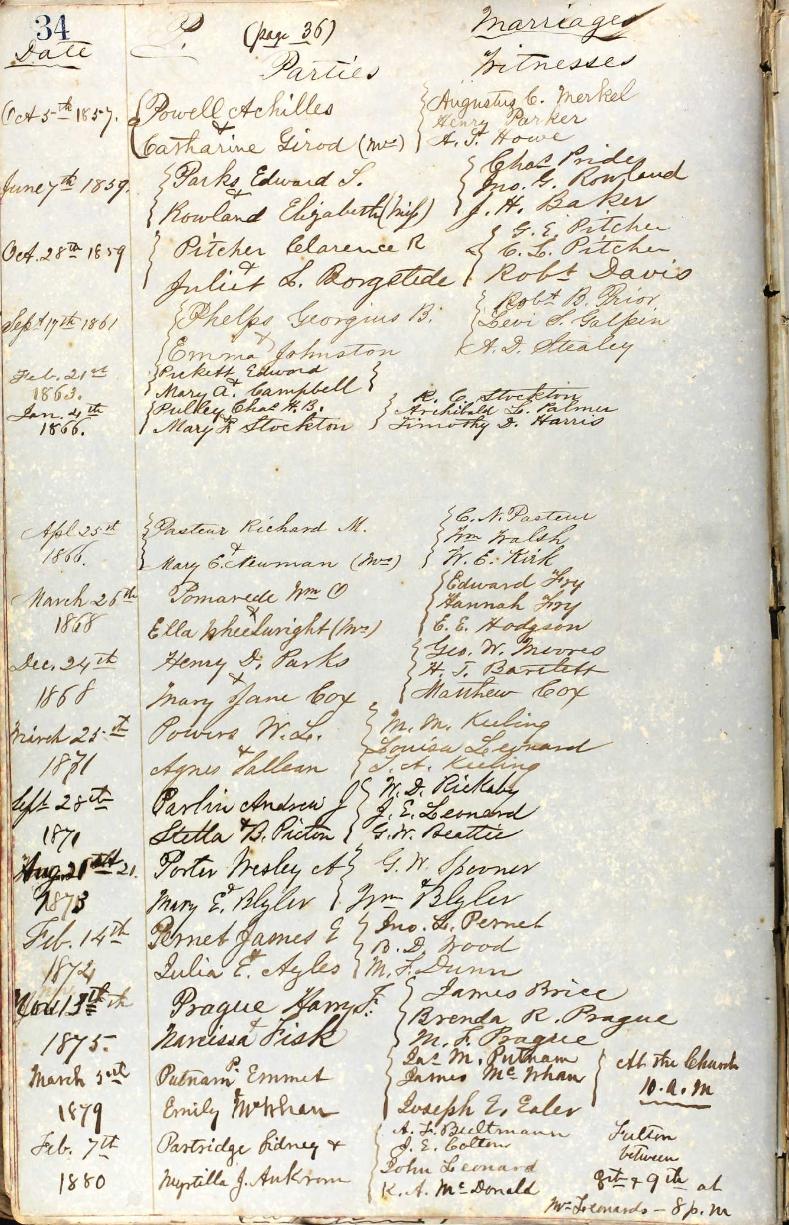 34
P. (page 36) Marriages
Date Parties Witnesses
Oct 5th 1857. Powell Achilles Augustus C. Merkel
& Henry Parker
Catharine Girod (Mrs) A. F. Howe
June 7th 1859. Parks Edward S. Chas Pride
& Jno. G. Rowland
Rowland Elizabeth (Miss) J. H. Baker
Oct. 28th 1859 Pitcher Clarence R G. E. Pitcher
& C. L. Pitcher
Juliet L. Borgstede Robt Davis
Sept 17th 1861 Phelps Georgius B. Robt B. Prior
& Levi S. Galpin
Emma Johnston A. D. Stealey
Feb. 21st Pickett Edward
1863. Mary A. & Campbell
Jan. 4th Pulley Chas H. B. R. C. Stockton
1866. Mary R Stockton Archibald L. Palmer
Timothy D. Harris
Apl 25st Pasteur Richard M. C. N. Pasteur
1866. & Wm Walsh
Mary C. Newman (Mrs) W. E. Kirk
March 26th Pomarede Wm O Edward Fry
1868 & Hannah Fry
Ella Wheelwright (Mrs) E. E. Hodgson
Dec. 24th Henry D. Parks Geo. W. Moores
& H. T. Bartlett
1868 Mary Jane Cox Matthew Cox
March 25st Powers W. L. M. M. Keeling
& Louisa Leonard
1871 Agnes Sallean S. A. Keeling
Sept 28th Parlin Andrew J W. D. Rickaby
J. E. Leonard
1871 Stella & B. Picton G. W. Beattie
Aug 21 21. Porter Wesley A G. W. Spooner
1873 Mary E. & Blyler Wm Blyler
Feb. 14th Pernet James E Jno. L. Pernet
B. D. Wood
1874 Julia E. & Ayles M. F. Dunn
13th Prague Harry F. James Brice
Brenda R. Prague
1875. Narcissa & Fisk M. F. Prague
March 5st Putnam P. Emmet Jas M. Putnam At the Church
James McWhan 10. a. m
1879 Emily & McWhan Joseph E. Ealer
Feb. 7th Partridge Sidney & A. F. Bultmann Fulton
J. E. Colton between
1880 Myrtilla J. Ankrom John Leonard 8th & 9th at
K. A. McDonald Mrs Leonards - 8 p. m